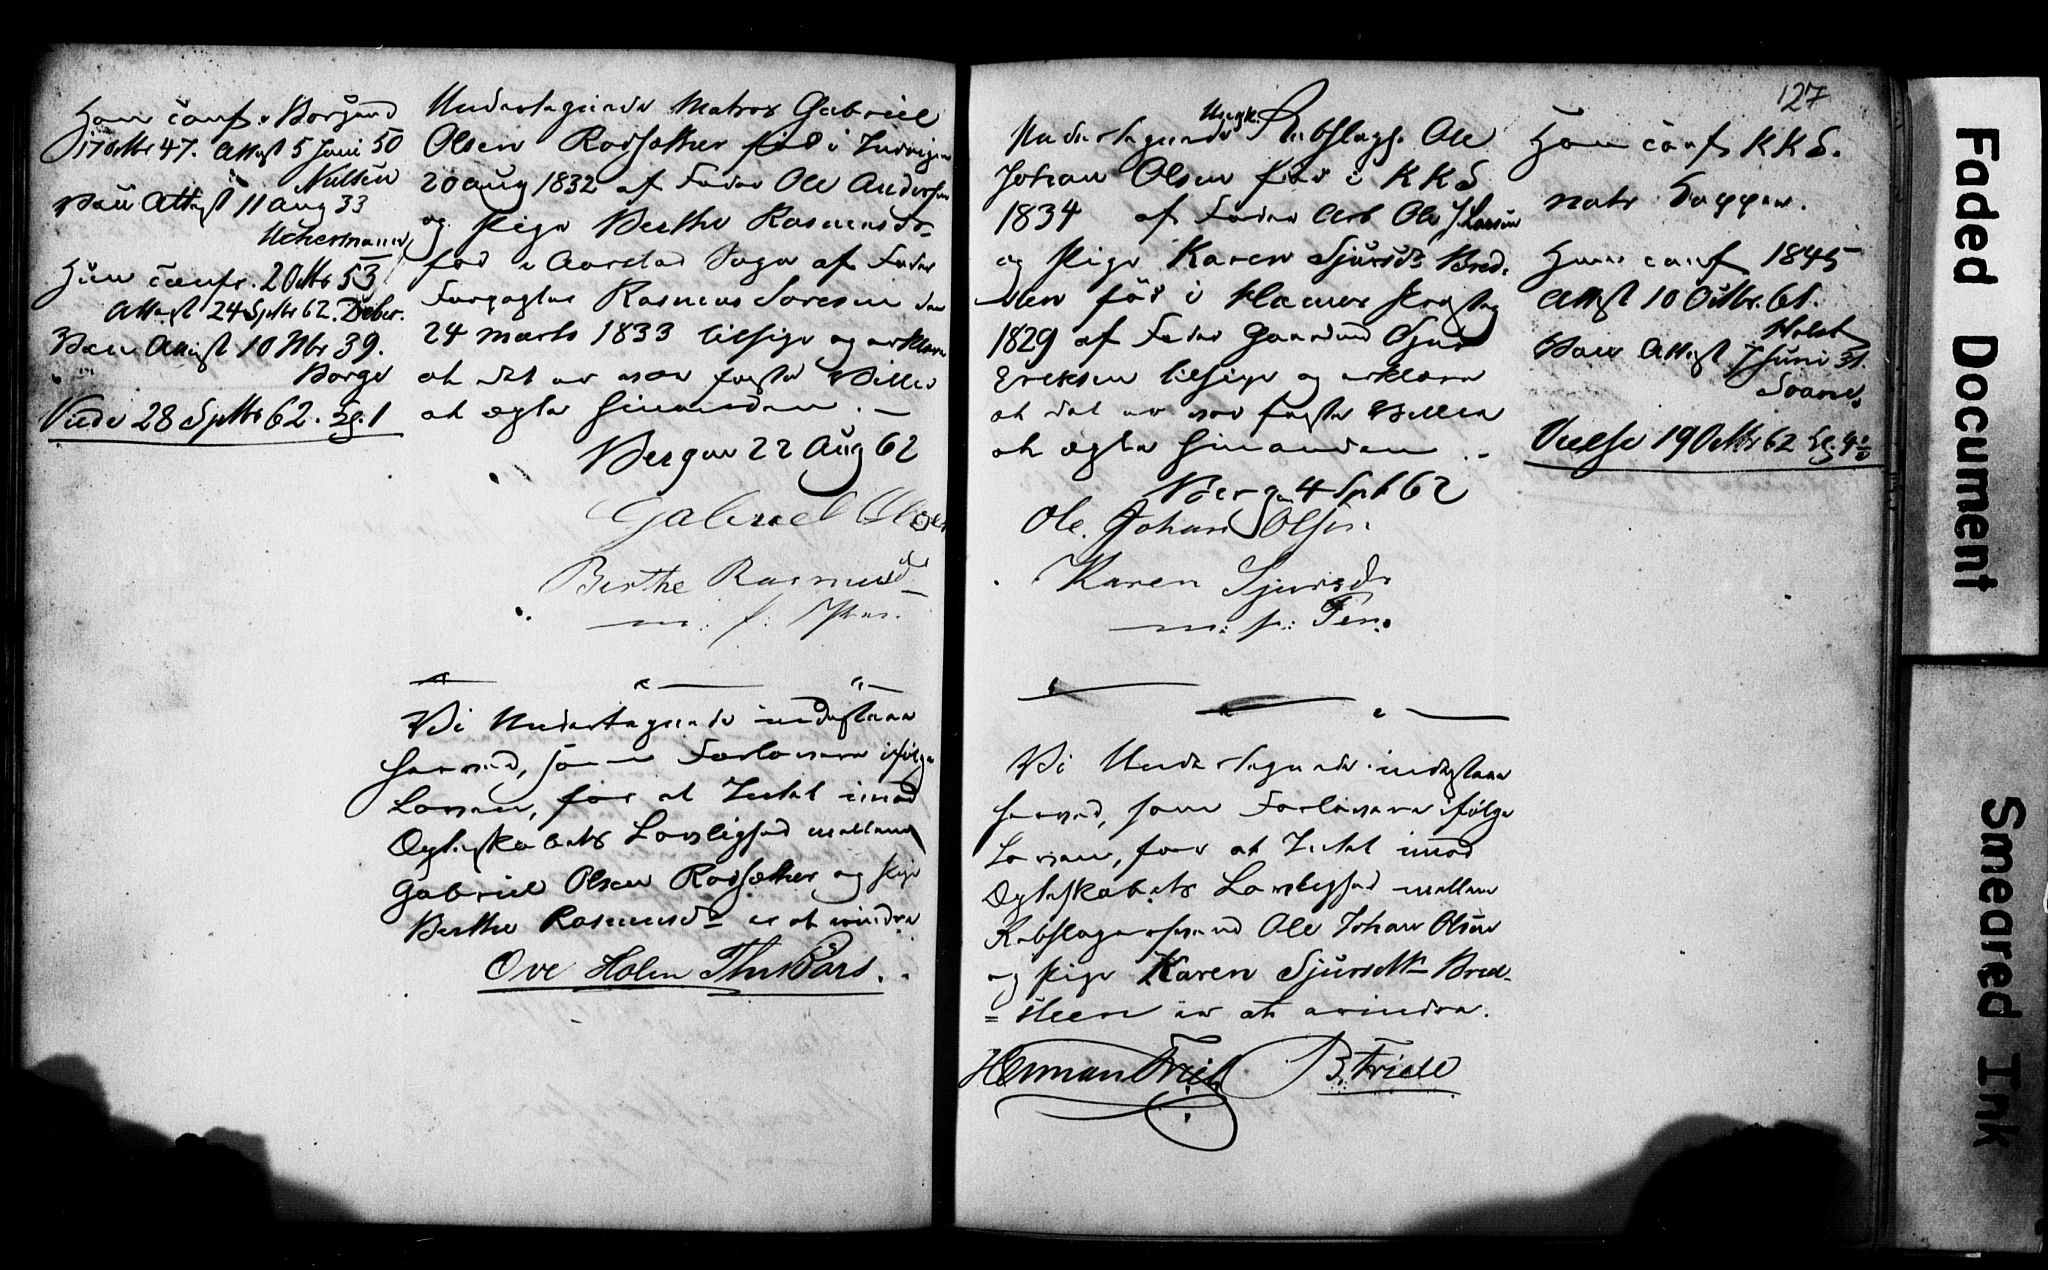 Han conf. Borgund
17 Octbr 47. Attest 5 Juni 50
Vacc Attest 11 Aug 33
Hun confr. 2 Octbr 53
Attest 24 Septbr 62.
Vacc Attest 10 39.
Viede 28 Septbr 62.
Undertegnede Matros Gabriel
Olsen Rodsæther fød i
20 Aug 1832 af Fader Ole Andersen
og Pige Berthe Rasmusdr
fød i Aarstad Sogn af Fader
Rasmus den
24 Marts 1833 tilsige og erklære
at det er vor faste Villie
at ægte hinanden. –
Bergen 22 Aug 62
Gabriel Olsen
Berthe Rasmusd
m. f. Pen.
Vi Undertegnede indestaae
herved, som Forlovere ifølge
Loven, for at Intet imod
Ægteskabets Lovlighed mellem
Gabriel Olsen Rodsæther og Pige
Berthe Rasmusdr er at erindre
Ove Holm
127
Undertegnede Ungk. Rebslags. Ole
Johan Olsen fød i KKS
1834 af Fader Arb Ole
og Pige Karen Sjursdr Bred-
steen fød i
1829 af Fader Gaardmd Sjur
Ericksen tilsige og erklære
at det er vor faste Villie
at ægte hinanden. –
Bergen 4 Sept 62
Ole. Johan Olsen.
Karen Sjursdr
m: f: Pen.
Vi Undertegnede indestaae
herved, som Forlovere ifølge
Loven, for at Intet imod
Ægteskabets Lovlighed mellem
Rebslagersvend Ole Johan Olsen
og Pige Karen Sjursdtr Bred-
= steen er at erindre.
Herman Friele B. Friele
Han conf KKS.
Hun conf 1845
Attest 10 Octbr. 61.
Vacc Attest 7 Juni 31.
Vielse 19 Octbr 62
Faded Document
Smeared Ink